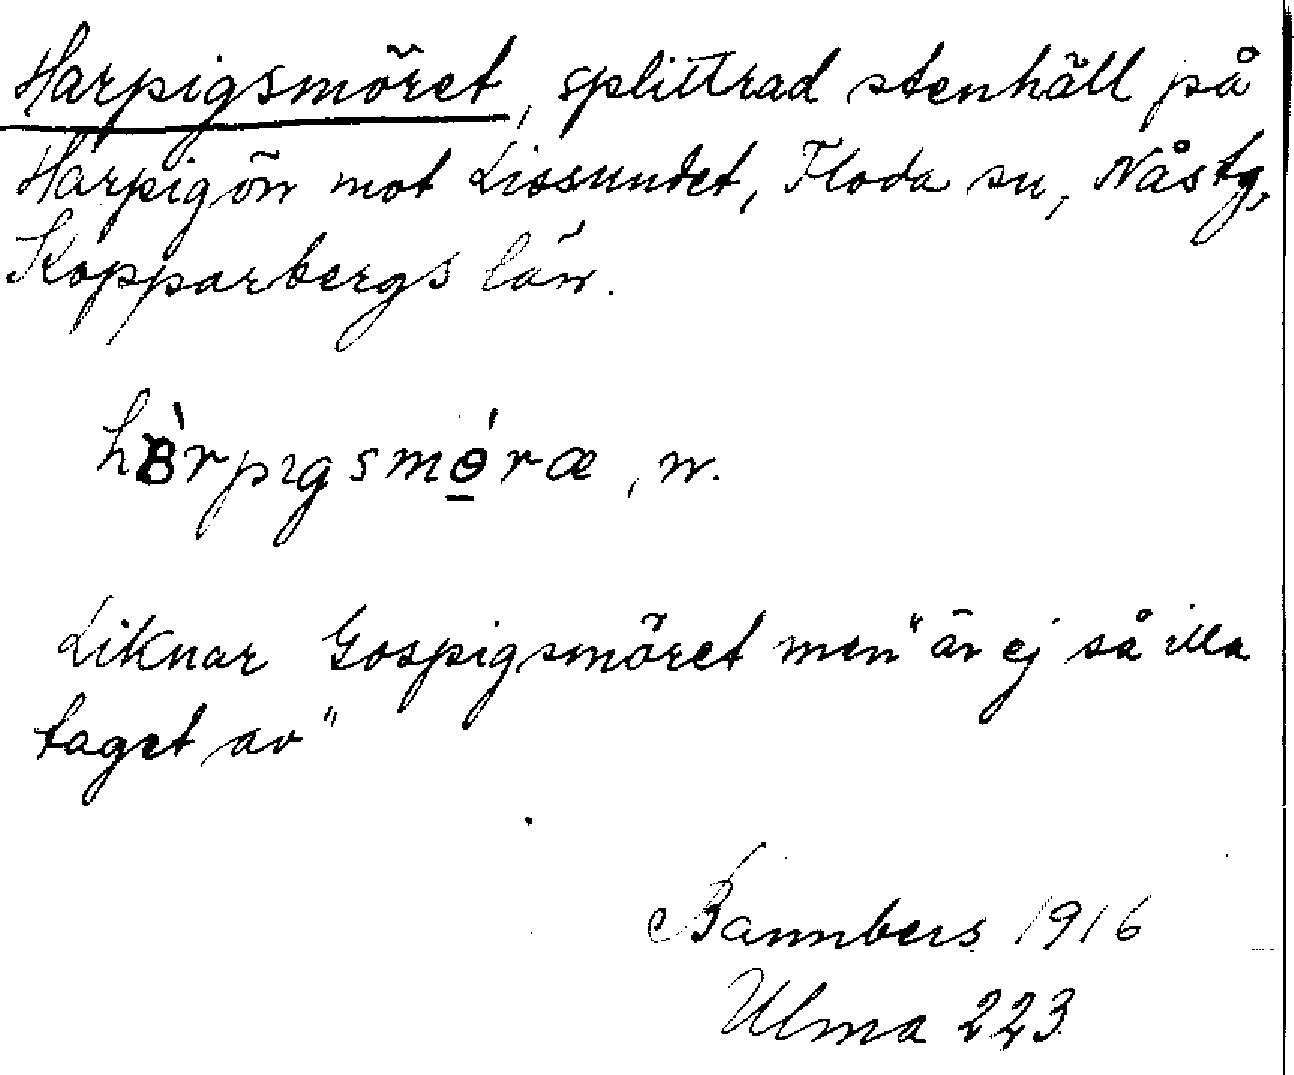 Harpigsmöret, splittrad stenhäll på
Harpigön mot Lissundet, Floda sn, Nåstg,
Kopparbergs län.
hɞ̀rpıgsmɵ̠́ræ, n.
Liknar Gospigsmöret men "är ej så illa
taget av"
Bannbers 1916
Ulma 223